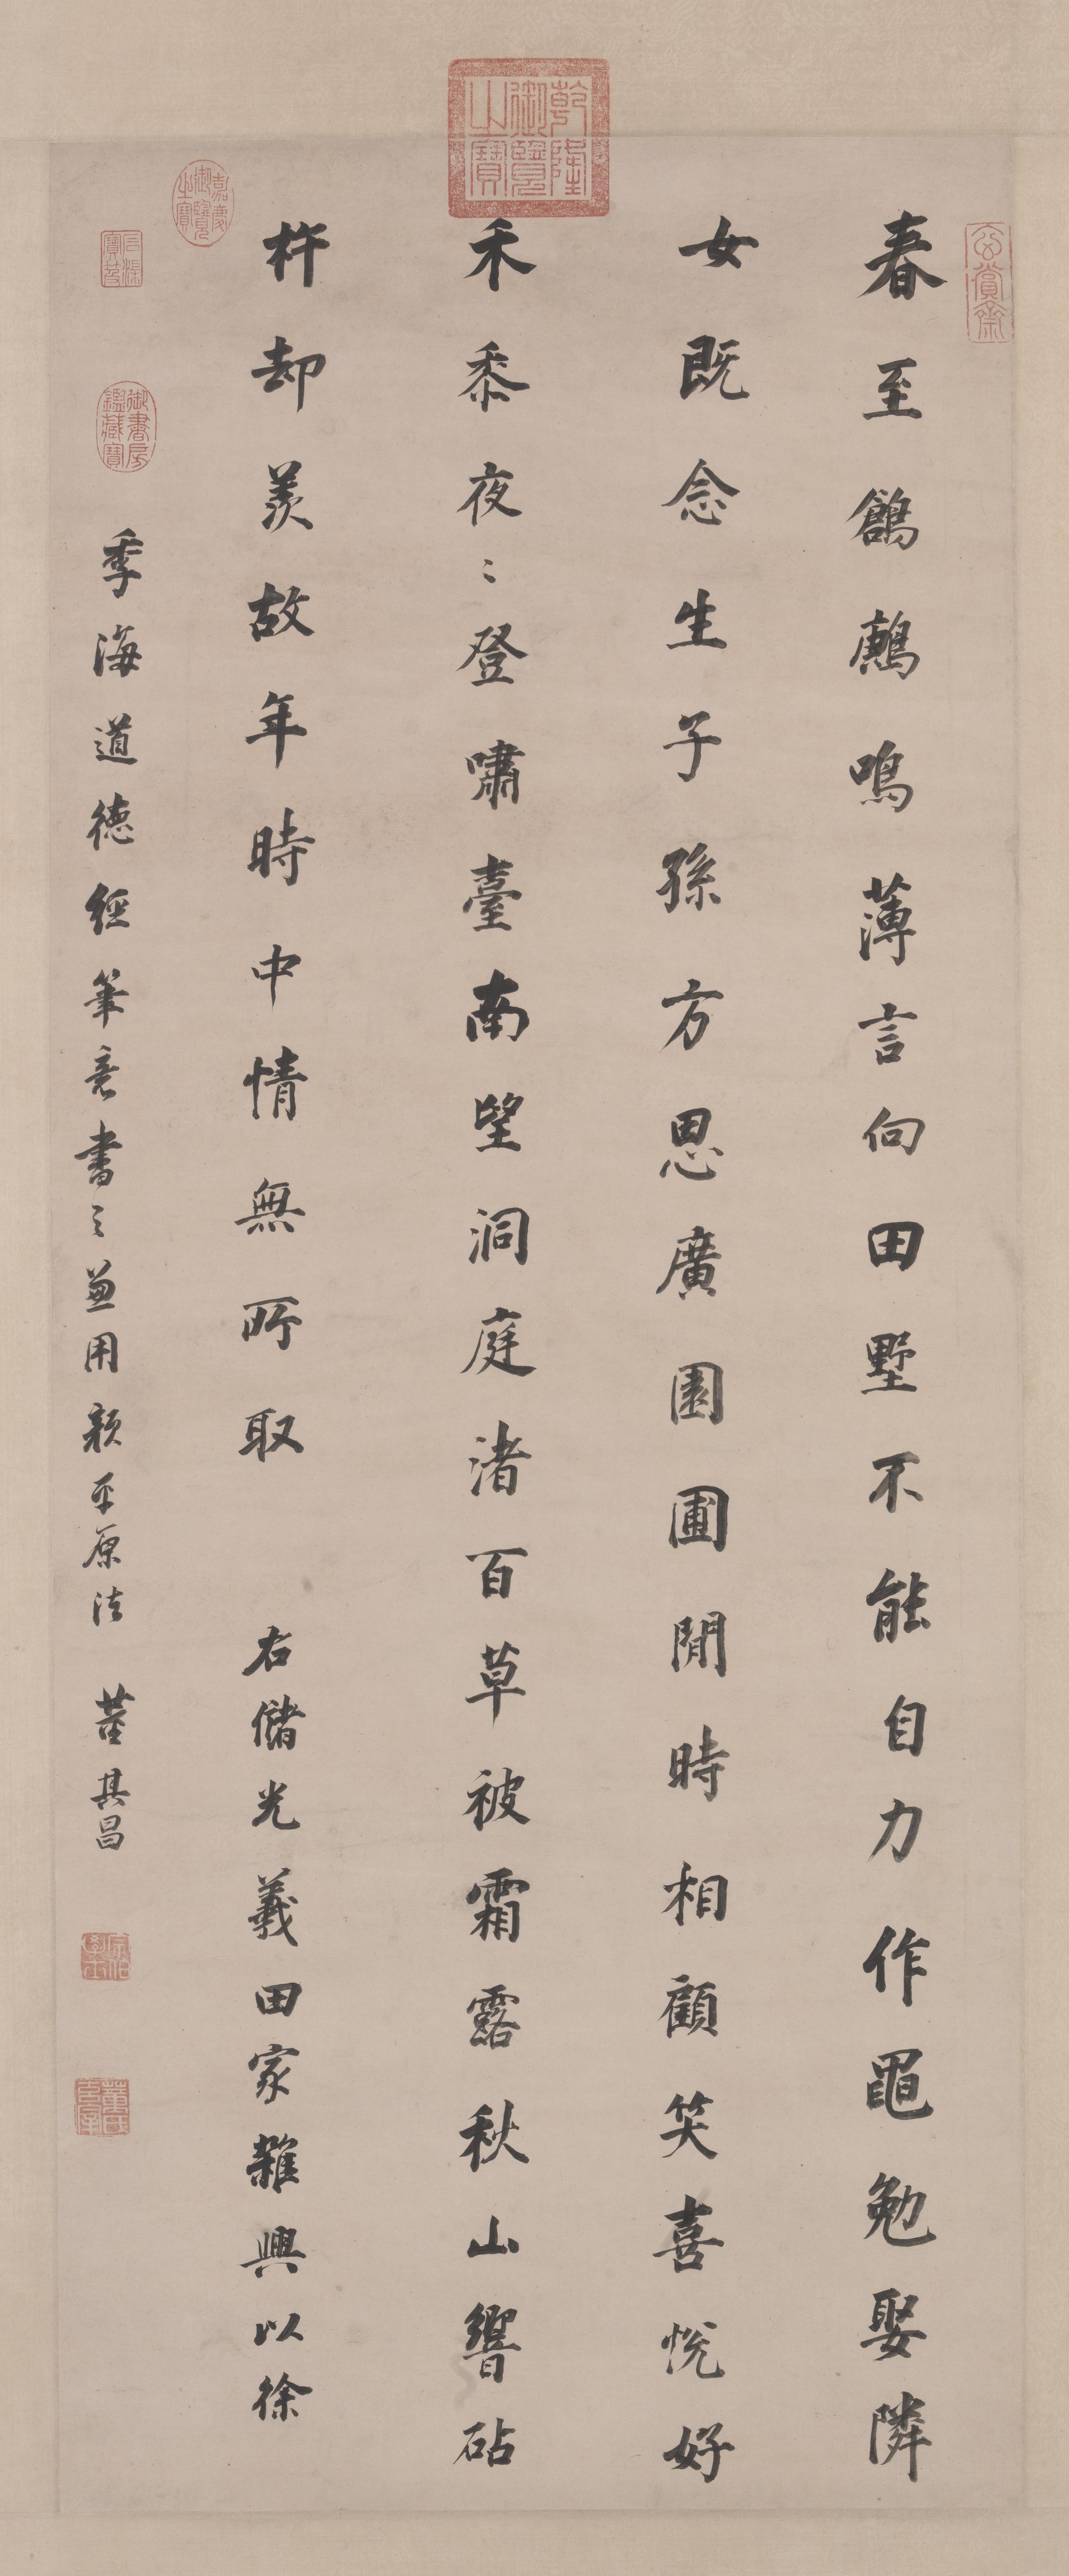 春至鶬鶊鳴薄言向田墅不能自力作黽勉娶隣
女既念生子孫方思廣園圃閒時相顧笑喜悅好
禾黍夜〻登嘯臺南望洞庭渚百草被霜露秋山響砧
杵却羨故年時中情無所取
右儲光羲田家雜興以徐
季海道德經筆意書之兼用顏平原法 董其昌
乾隆御覽之寶
嘉慶御覽之寶
石渠寶笈
御書房鑑藏寶
玄賞齋
宗伯學士